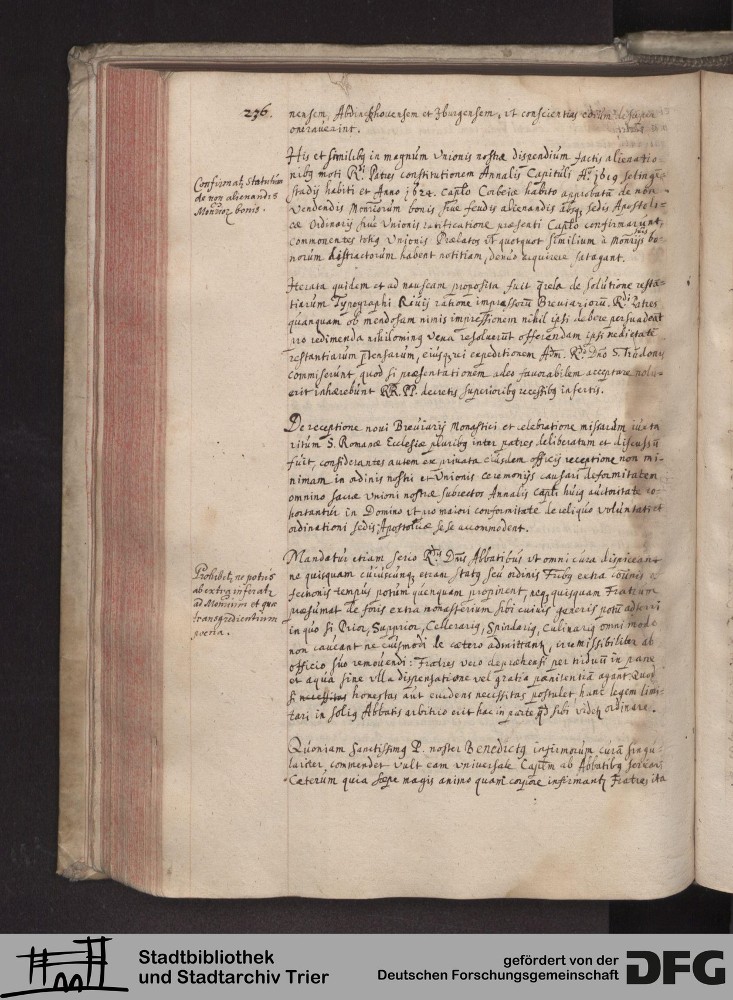 236.
nensem, Abdinckhouensem et Iburgensem, vt conscientias eorum desuper
onerauerint.
Confirmatʒ Statutum
de non alienandis
Monrioʒ bonis.
His et similibʒ in magnum Vnionis nostræ dispendium factis alienatio-
nibʒ moti Rdi Patres constitutionem Annalis Capituli Ao 1619 Selingen-
stadij habiti et Anno 1624. Caplo Corbeiæ habito approbatam de non
vendendis Monriorum bonis siue feudis alienandis absqʒ sedis Apostoli-
cæ Ordinarij siue Vnionis ratificatione præsenti Caplo confirmarunt,
commonentes totiʒ Vnionis Prælatos vt quotquot similium à Monrijs bo-
norum distractorum habent notitiam, denuo acquirere satagant.
Iterata quidem et ad nauseam proposita fuit qrela de solutione resta-
tiarum Typographi ratione impressorū Breuiariorū. Rdi Patres
quanquam ob mendosam nimis impressionem nihil ipsi debere persuadeat
pro redimenda nihilominʒ vexa resoluerūt offerendam ipsi medietatē
restantiarum ptensarum, eiusqʒ rei expeditionem Adm. Rdo Dno S. Trudonis
commiserunt, quod si præsentationem adeo fauorabilem acceptare nolu-
erit inhærebunt RR. PP. decretis superioribʒ recessibʒ insertis.
De receptione noui Breuiarij Monastici et celebratione missarum iuxta
ritum S. Romanæ Ecclesiæ pluribʒ inter patres deliberatum et discussū
fuit, considerantes autem ex priuata eiusdem officij receptione non mi-
nimam in ordinis nostri et Vnionis ceremonijs causari deformitatem
omnino sacræ vnioni nostræ subiectos Annalis Capli huiʒ auctoritate co-
hortantur in Domino vt pro maiori conformitate de reliquo voluntati et
ordinationi sedis Apostolicæ sese accommodent.
Prohibet, ne potus
ab extra inferatʒ
ad Monrium et quæ
transgredientium
poena.
Mandatur etiam serio Rdis Dnis Abbatibus vt omni cura dispiciant
ne quisquam cuiuscunqʒ etiam statʒ seu ordinis Fribʒ extra cōmunis re-
fectionis tempus potum quenquam propinent, neqʒ quisquam Fratrum
præsumat de foris extra monasterium sibi cuiusuis generis potū adferri
in quo si Prior, Supprior, Cellerariʒ, Spindariʒ, Culinariʒ omni modo
non caueant ne eiusmodi de cætero admittant, irremissibiliter ab
officio suo remouendi: Fratres vero deprehensi per triduū in pane
et aqua sine vlla dispensatione vel gratia pænitentiā agant. Quod
si necessitas honestas aut euidens necessitas postulet hanc legem limi-
tari in soliʒ Abbatis arbitrio erit hac in parte qd sibi videbʒ ordinare.
Quoniam Sanctissimʒ P. noster Benedictʒ infirmorum curā singu-
lariter commendet vult eam vniuersale Caplm ab Abbatibʒ seruari.
Cæterum quia sæpe magis animo quam corpore infirmantʒ Fratres, ita
Stadtbibliothek
und Stadtarchiv Trier
gefördert von der
Deutschen Forschungsgemeinschaft
DFG